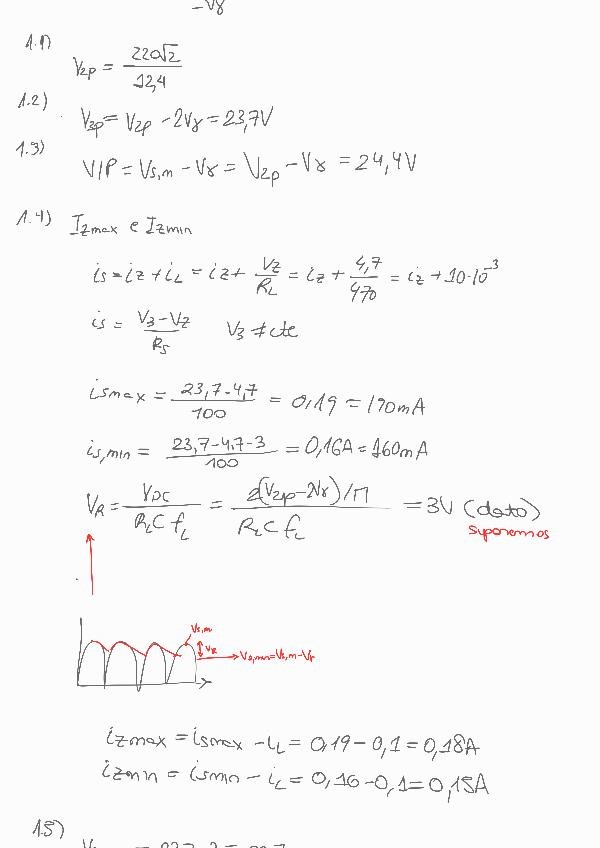 -Vγ
1.1)
V2p = 220√2 / 12,4
1.2) V3p = V2p - 2Vγ = 23,7V
1.3) VIP = Vs,m - Vγ = V2p - Vγ = 24,4V
1.4) Izmax e Izmin
is = iz + iL = iz + Vz/RL = iz + 4,7/470 = iz + 10·10⁻³
is = V3-Vz / Rs V3 ≠ cte
ismax = 23,7-4,7 / 100 = 0,19 = 190mA
is,min = 23,7-4,7-3 / 100 = 0,16A = 160mA
VR = VDC / RLC fL = 2(V2p-2Vγ)/π / RLC fL = 3V (dato)
suponemos
Vs,m
VR
Vs,min=Vs,m-Vr
izmax = ismax - iL = 0,19 - 0,1 = 0,18A
izmin = ismin - iL = 0,16 - 0,1 = 0,15A
1.5)